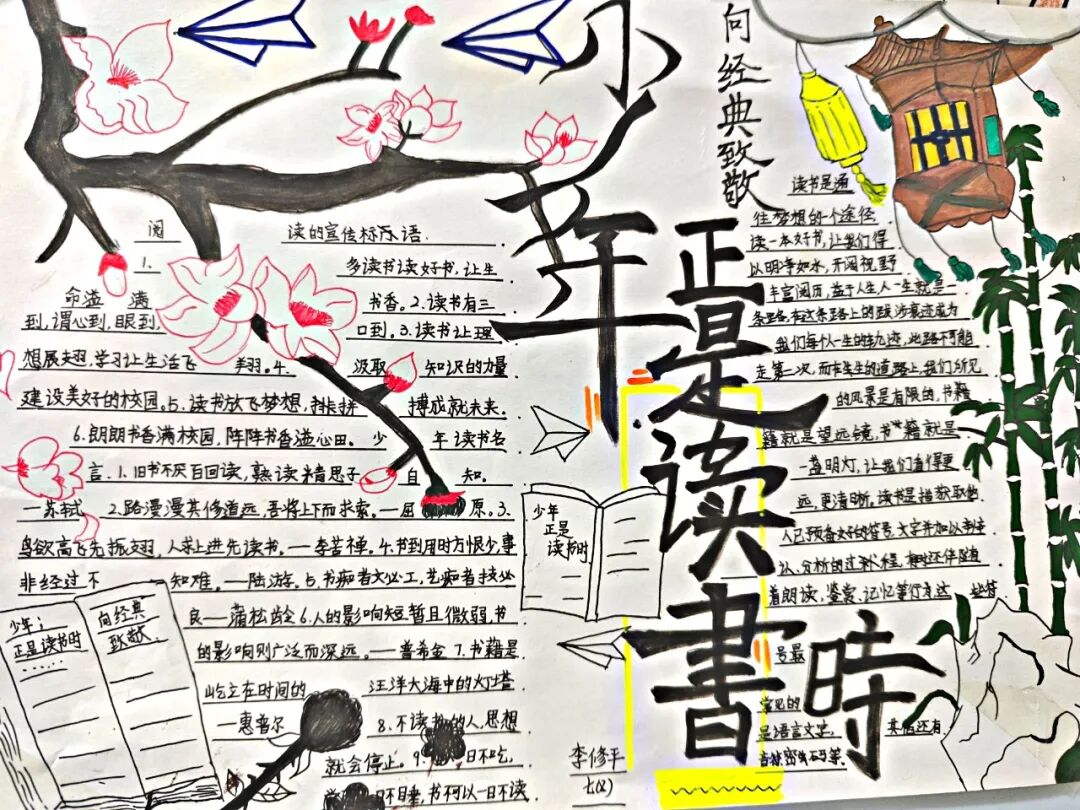 少年
正是读書時
向经典致敬
阅 读的宣传标示语.
1. 多读书读好书,让生
命溢 满 书香。2.读书有三
到,谓心到,眼到, 口到。3.读书让理
想展翅,学习让生活飞 翔。4. 汲取 知识的力量
建设美好的校园。5.读书放飞梦想, 拼 搏成就未来。
6.朗朗书香满校园,阵阵书香溢心田。 少 年读书名
言.1.旧书不厌百回读,熟读精思子 自 知.
一苏轼 2.路漫漫其修道远,吾将上下而求索。一屈 原。3.
鸟欲高飞先振翅,人求上进先读书。一李苦禅。4.书到用时方恨少,事
非经过不 知难。一陆游。5.书痴者文必工,艺痴者技必
良一蒲松龄6.人的影响短暂且微弱,书
的影响则广泛而深远。一普希金 7.书籍是
屹立在时间的 汪洋大海中的灯塔
一惠普尔 8.不读书的人,思想
就会停止。9. 日不吃,
日不睡,书不可以一日不读.
少年:
正是读书时
......
向经典
致敬.
少年
正是
读书时
李修平
七(2)
读书是通
往梦想的一个途径
读一本好书,让我们得
以明净如水,开阔视野
丰富阅历,益于人生人一生就是一
条路 在这条路上的跋涉痕迹成为
我们每个人一生的轨迹,此路不可能
走第二次,而在人生的道路上,我们所见
的风景是有限的,书籍
籍就是望远镜,书籍就是
一盏明灯,让我们看得更
远,更清晰。读书是指获取他
人已预备好的符号,文字并加以辨
认、分析的过程, 还伴随
着朗读,鉴赏,记忆等行为这 些符
号最
常见的
是语言文字, 其他还有
音符密码等.